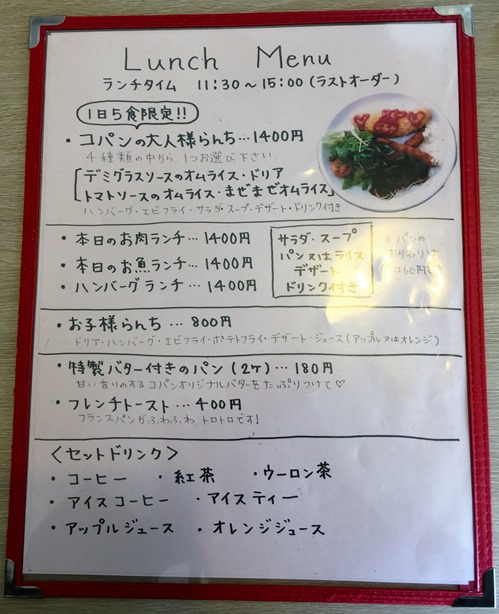 Lunch Menu
ランチタイム 11:30～15:00(ラストオーダー)
1日5食限定!!
・コパンの大人様らんち…1400円
4種類の中から、1つお選び下さい。
デミグラスソースのオムライス・ドリア
トマトソースのオムライス・まぜまぜオムライス
ハンバーグ・エビフライ・サラダ・スープ・デザート・ドリンク付き
・本日のお肉ランチ…1400円
・本日のお魚ランチ…1400円
・ハンバーグランチ…1400円
サラダ・スープ
パン又はライス
デザート
ドリンク付き
※パンの
おかわりは
コ60円です
・お子様らんち…800円
ドリア・ハンバーグ・エビフライ・ポテトフライ・デザート・ジュース(アップル又はオレンジ)
・特製バター付きのパン(2ケ)…180円
甘い香りのするコパンオリジナルバターをたっぷりつけて♡
・フレンチトースト…400円
フランスパンが、ふわふわ、トロトロです!
〈セットドリンク〉
・コーヒー ・紅茶 ・ウーロン茶
・アイスコーヒー ・アイスティー
・アップルジュース ・オレンジジュース